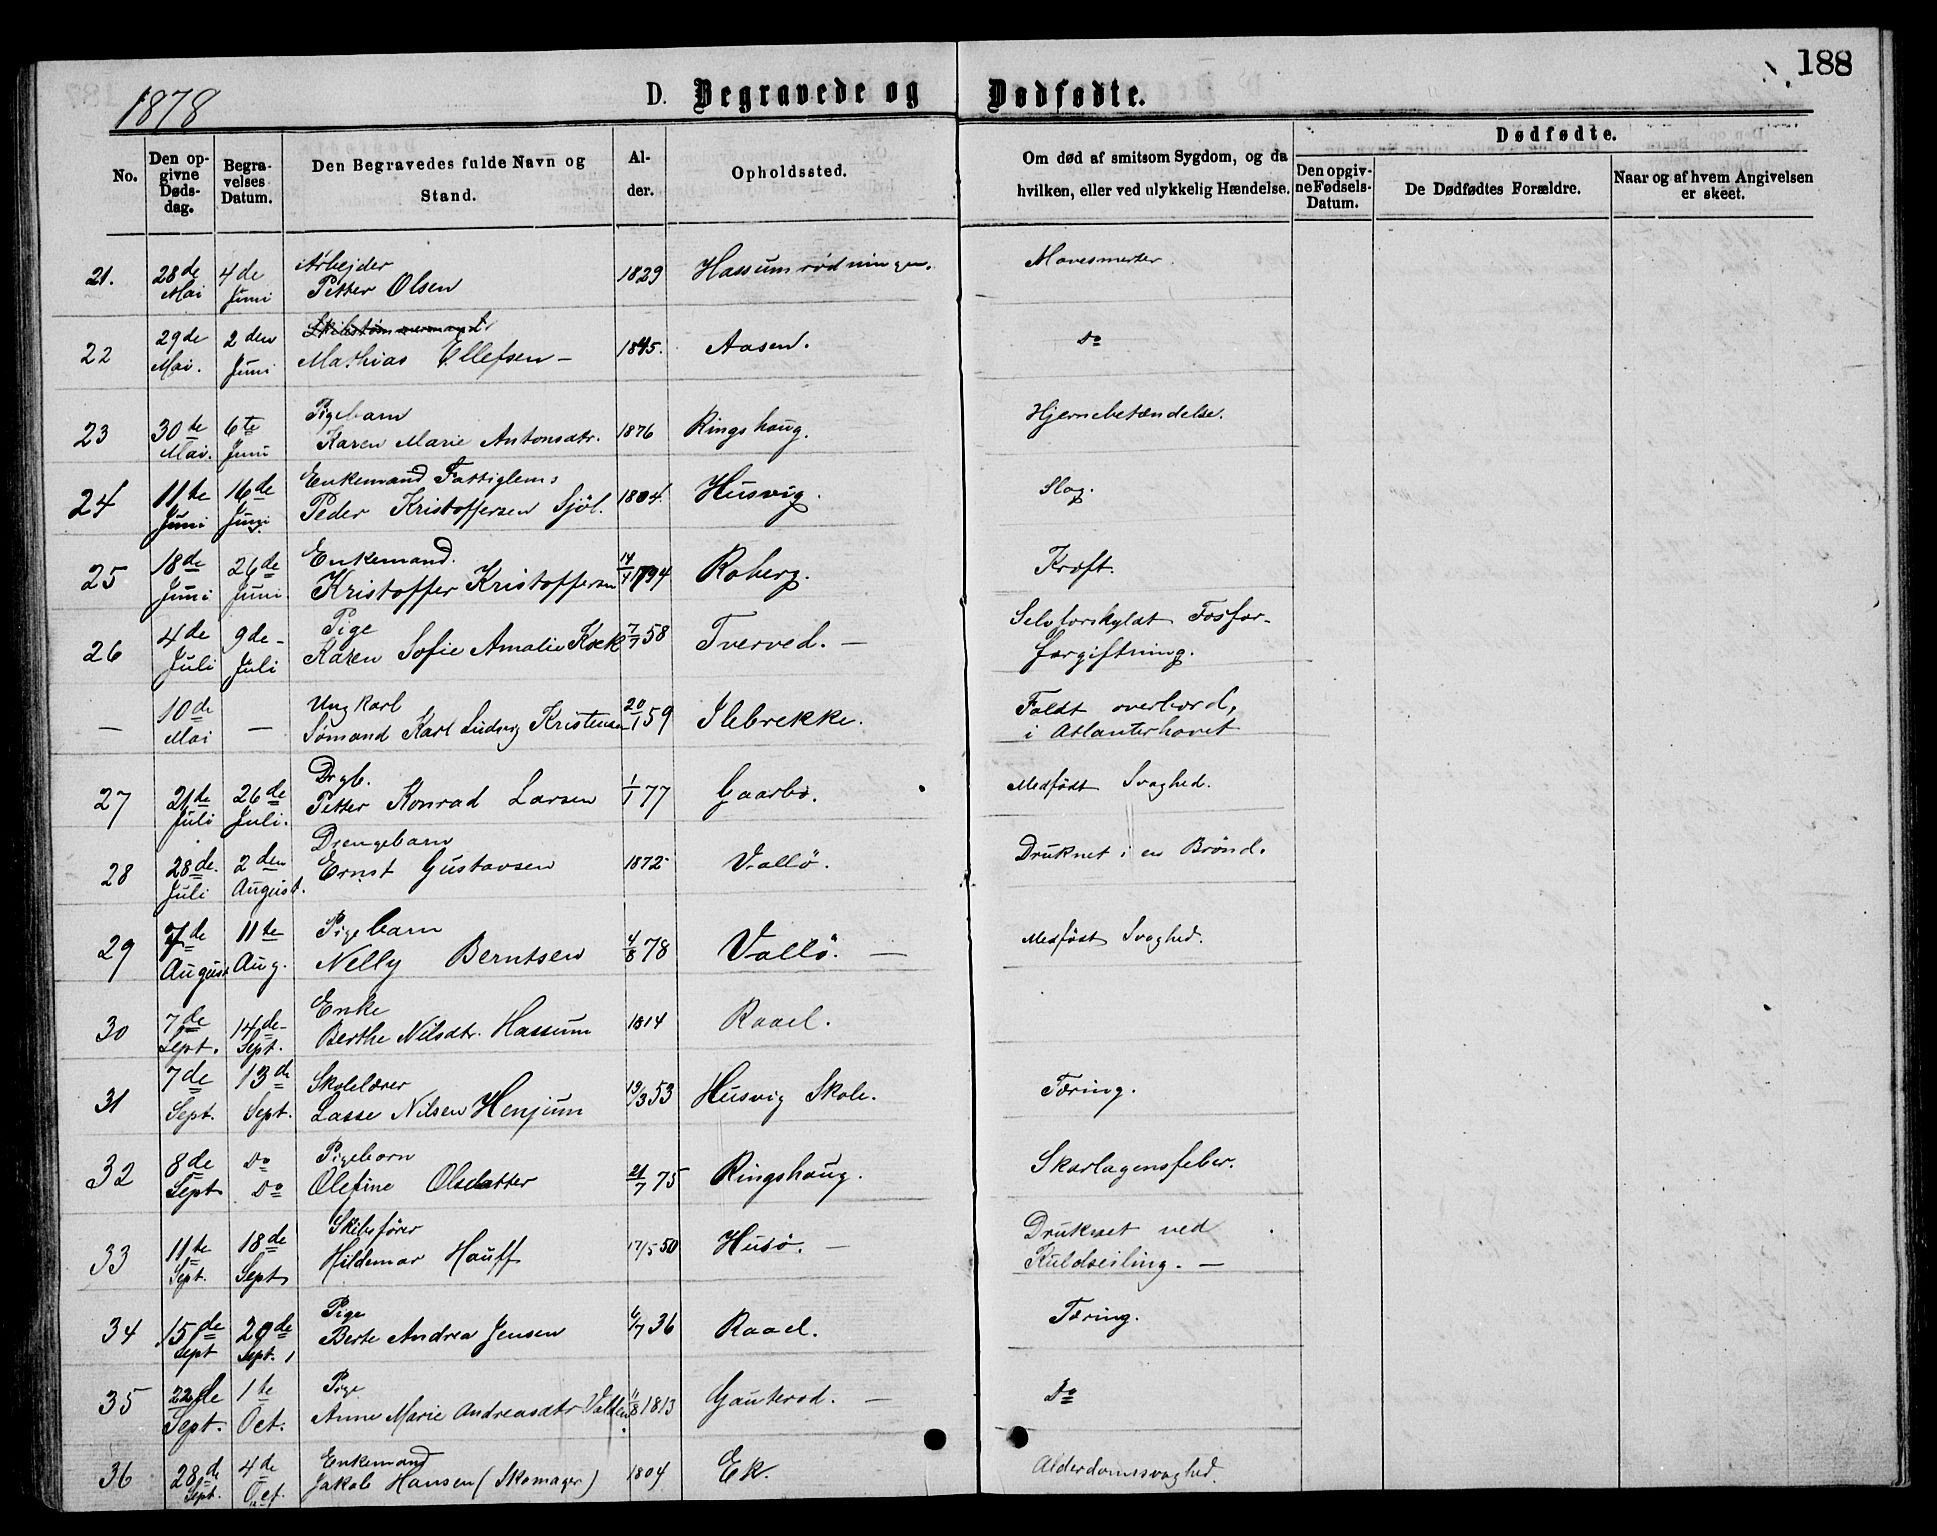 188
1878 D. Begravede og Dødfødte.
No. Den opgivne Dødsdag. Begravelses Datum. Den Begravedes fulde Navn og Stand. Alder. Opholdssted. Om død af smitsom Sygdom, og da hvilken, eller ved ulykkelig Hændelse. Dødfødte. Den opgivne Fødsels-Datum. De Dødfødtes Forældre. Naar og af hvem Angivelsen er skeet.
21. 28de Mai 4de Juni Arbejder Petter Olsen 1829 Hassumrødningen. Mavesmerter.
22 29de Mai. 2den Juni Skibstømmermand Mathias Ellefsen — 1845. Aasen. Do
23 30te Mai. 6te Juni Pigebarn Karen Marie Antonsdtr. 1876 Ringshaug. Hjernebetændelse.
24 11te Juni 16de Juni Enkemand Fattiglems Peder Kristoffersen Sjöl. 1804. Husvig. Slag.
25 18de Juni 26de Juni Enkemand. Kristoffer Kristoffersen 14/4 1794 Roberg. Kræft.
26 4de Juli 9de - Juli Pige Karen Sofie Amalie 7/7 58 Tverved. — Selvforskyldt Fosforforgiftning.
— 10de Mai — Ungkarl Sømand Karl Ludvig Kristensen 20/1 59 Ilebrekke. Faldt overbord, i Atlanterhavet
27 21te Juli 26de Juli. Drgb. Petter Konrad Larsen 1/1 77 Gaarbo. Medfødt Svaghed.
28 28de Juli 2den August. Drengebarn Ernst Gustavsen 1872 Vallö. Druknet i en Brønd.
29 7de August 11te Aug. Pigebarn Nelly Berntsen 4/8 78 Vallö. — Medfødt Svaghed.
30 7de Sept. 14de Sept. Enke Berthe Nilsdtr. Hassum 1814 Raael.
31 7de Sept. 13de Sept. Skolelærer Lasse Nilsen Henjum 19/3 53 Husvig Skole. Tæring.
32 8de Sept Do Do Pigebarn Olefine Olsdatter 21/7 75 Ringshaug. Skarlagensfeber.
33 11te Sept. 18de Sept Skibsfører Hildemar Hauff 17/5 50 Husö. — Druknet ved Kuldseiling. —
34 15de Sept 20de Sept. Pige Berte Andrea Jensen 6/7 36 Raael. Tæring.
35 22de Sept. 1te Oct. Pige Anne Marie Andreasdtr 11/8 1813 Gauterød. — Do
36 28de Sept. 4de Oct. Enkemand Jakob Hansen (Skomager) 1804 Ek. Alderdomssvaghed.